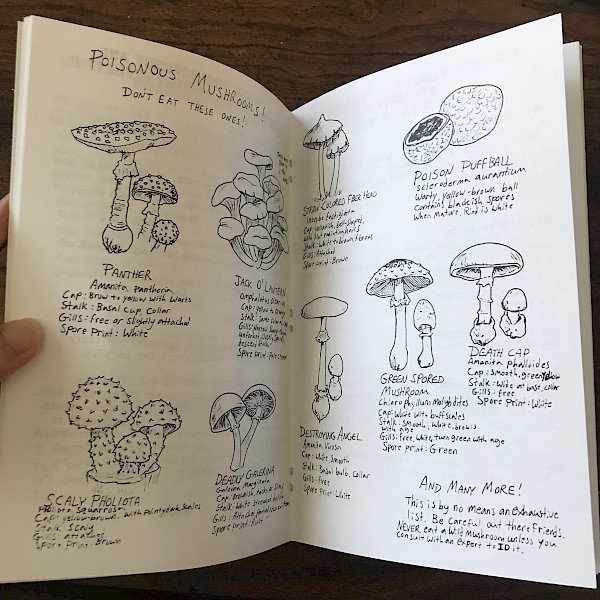 POISONOUS MUSHROOMS!
DON'T EAT THESE ONES!
PANTHER
Amanita pantherin
Cap: Brow to yellow with warts
Stalk: Basal cup, collar
Gills: free or slightly attached
Spore Print: White
JACK O'LANTERN
Omphalotus
Cap: yellow to orange
Stalk: Same color as
Gills: Narrow
Spore print:
SCALY PHOLIOTA
Squarrosa
Cap: yellow-brown, with pointy dark scales
Stalk: Scaly
Gills: attaches
Spore Print: Brown
DEADLY GALERINA
Galerina marginata
Cap: Brownish,
Stalk: White
Gills: Attached
Spore print: Rust
STRAW COLORED FIBER HEAD
Cap: yellowish, bell-shaped,
Stalk: White to brown, fibrous
Gills: Attached
Spore print: Brown
POISON PUFFBALL
Scleroderma aurantium
Warty, yellow-brown ball
contains blackish spores
when mature. Rind is White
DESTROYING ANGEL
Amanita Virosa
Cap: White, Smooth
Stalk: Basal bulb, collar
Gills: free
Spore Print: White
GREEN SPORED
MUSHROOM
Chlorophyllum Molybdites
Cap: White with buff scales
Stalk: Smooth, White, brown
with age
Gills: free, White, turn green with age
Spore print: Green
DEATH CAP
Amanita phalloides
Cap: Smooth, green yellow
Stalk: Wide at base, collar
Gills: free
Spore Print: White
AND MANY MORE!
This is by no means an Exhaustive
list. Be Careful out there friends.
NEVER eat a Wild Mushroom unless you
consult with an Expert to ID it.